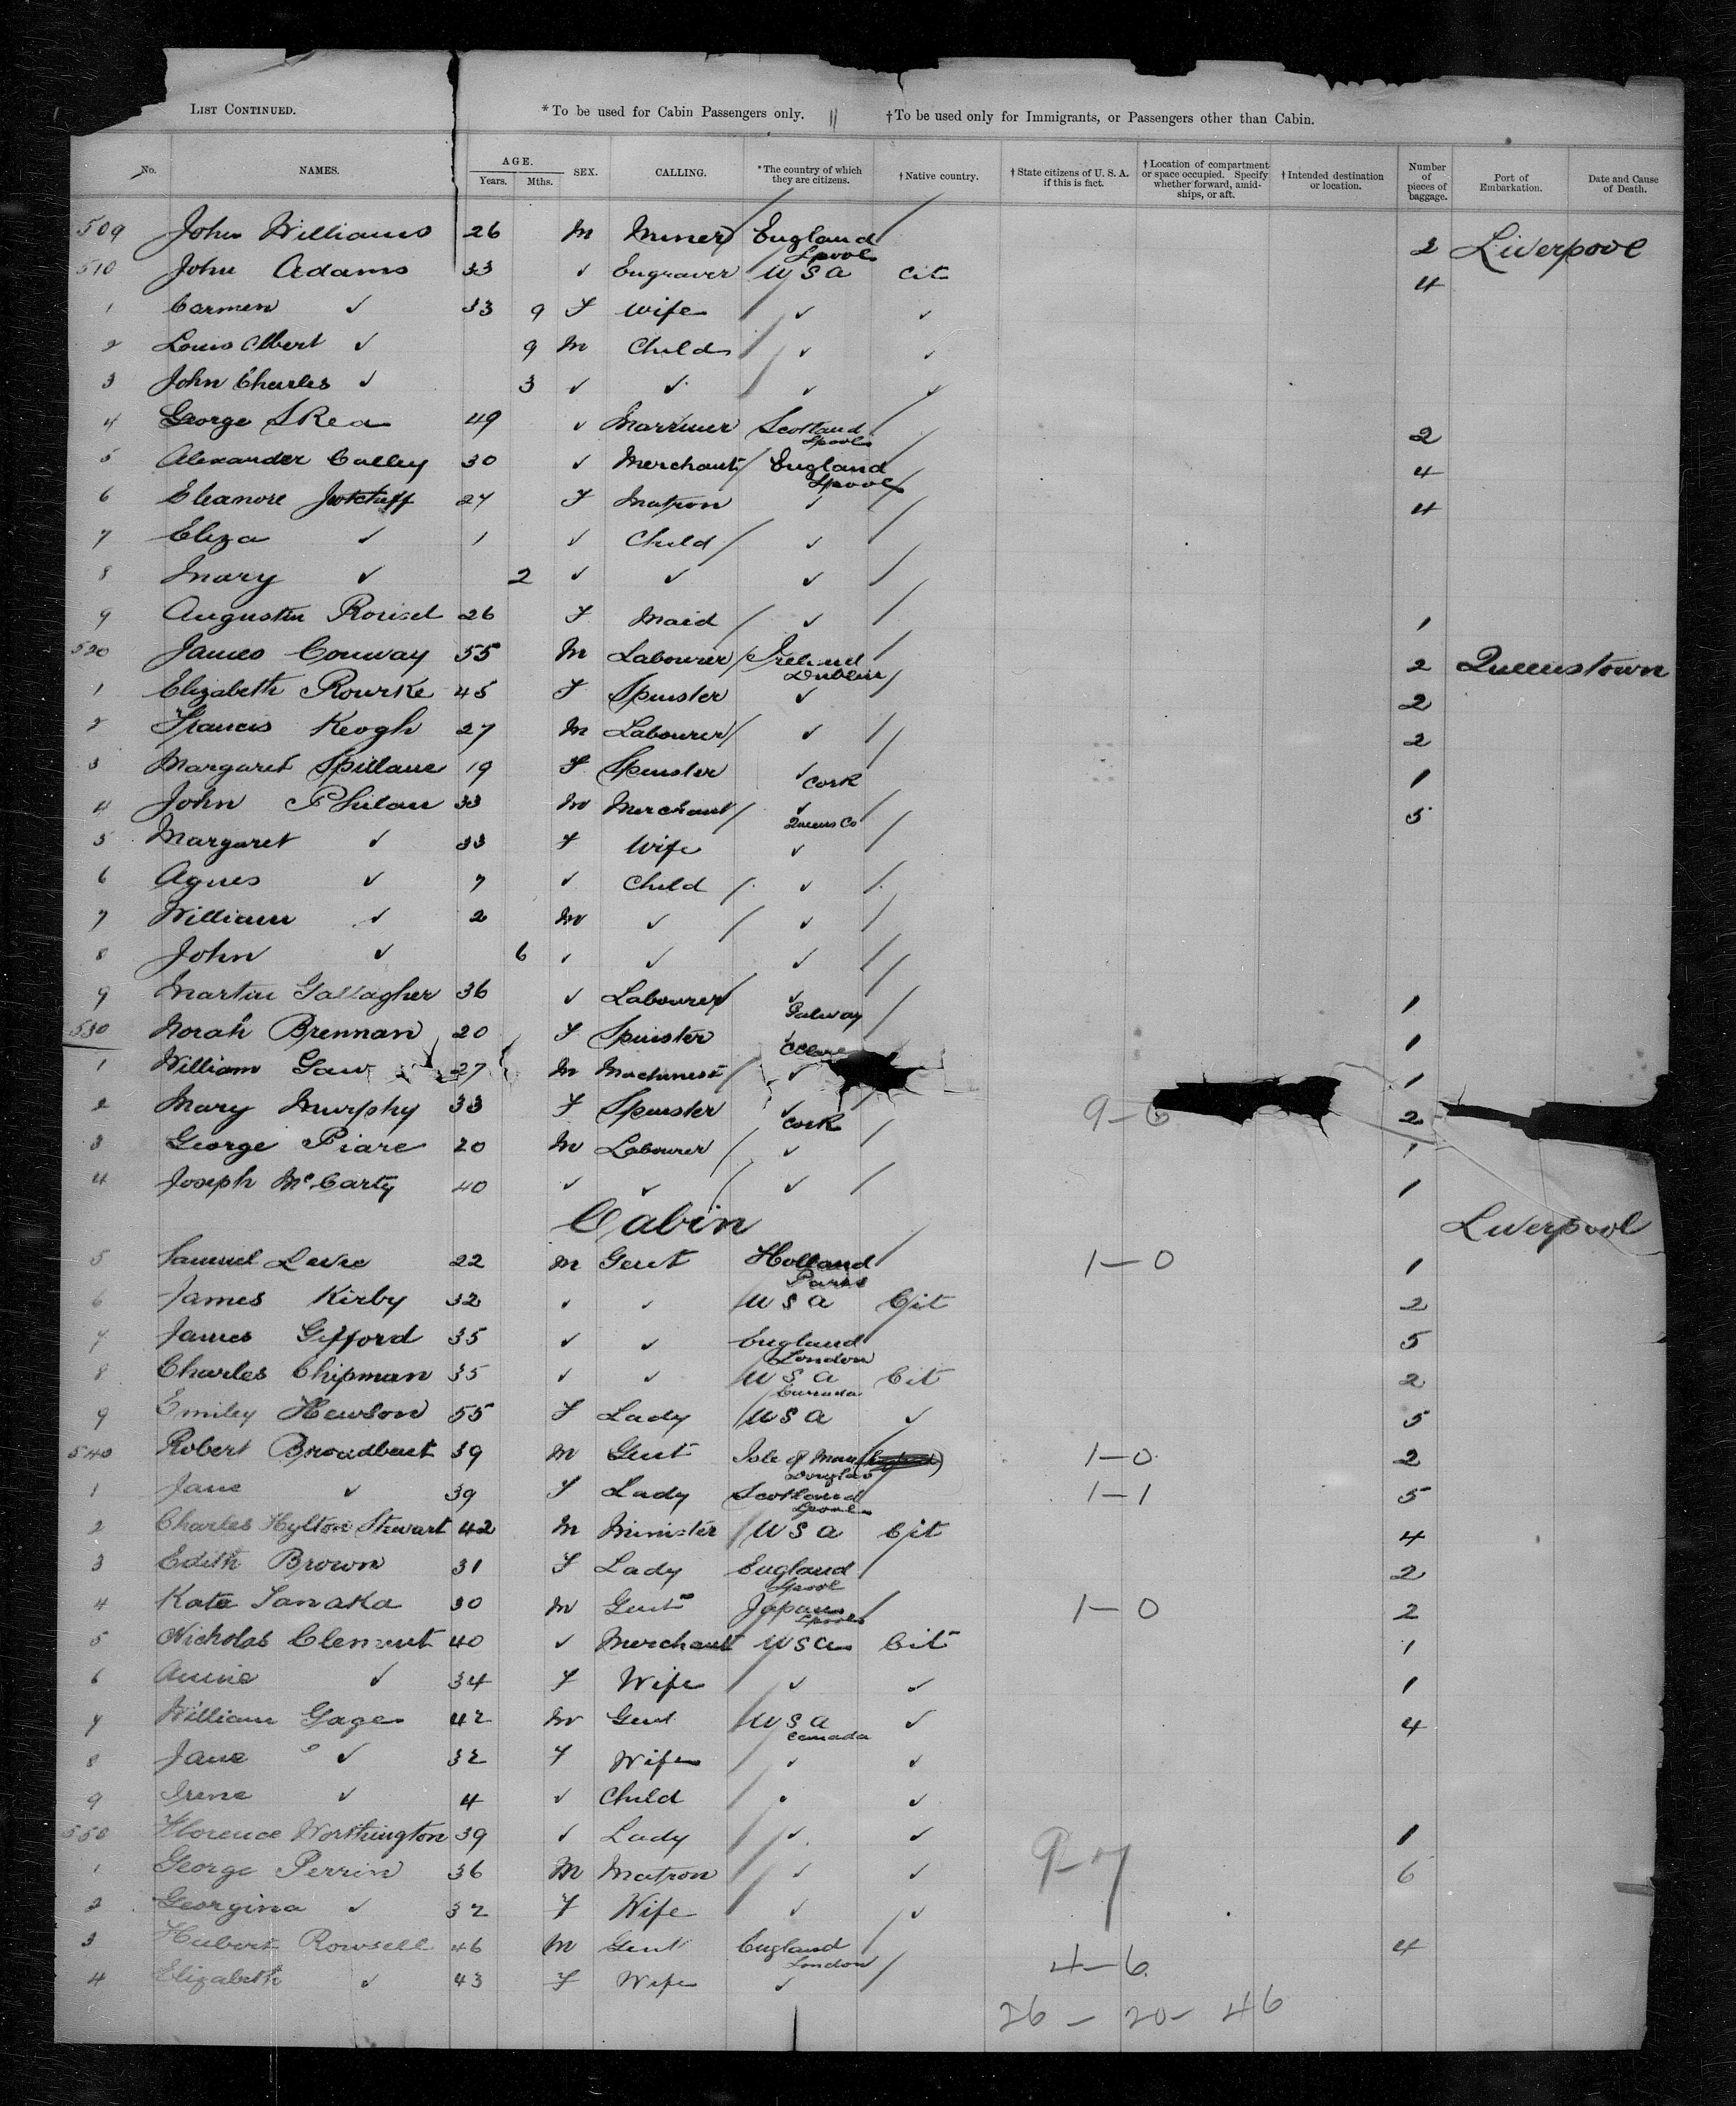 LIST CONTINUED. *To be used for Cabin Passengers only. †To be used only for Immigrants, or Passengers other than Cabin.
No. NAMES. AGE. Years. Mths. SEX. CALLING. *The country of which they are citizens. †Native country. †State citizens of U. S. A. if this is fact. †Location of compartment or space occupied. Specify whether forward, amidships, or aft. †Intended destination or location. Number of pieces of baggage. Port of Embarkation. Date and Cause of Death.
509 John Williams 26 M Miner England 2 Liverpool
Lpool
510 John Adams 33 ✓ Engraver U S A Cit 4
1 Carmen ✓ 33 9 F Wife ✓ ✓
2 Louis Albert ✓ 9 M Child ✓ ✓
3 John Charles ✓ 3 ✓ ✓ ✓ ✓
4 George SRea 49 ✓ Marriner Scotland 2
Lpool
5 Alexander Calley 30 ✓ Merchant England 4
Lpool
6 Eleanore 27 F Matron ✓ 4
7 Eliza ✓ 1 ✓ Child ✓
8 Mary ✓ 2 ✓ ✓ ✓
9 Augustin 26 F Maid ✓ 1
520 James Conway 55 M Labourer Ireland 2 Queenstown
Dublin
1 Elizabeth Rourke 45 F Spinster ✓ 2
2 Francis Keogh 27 M Labourer ✓ 2
3 Margaret Spillane 19 F Spinster ✓ 1
Cork
4 John Philan 33 M Merchant ✓ 5
Queens Co
5 Margaret ✓ 33 F Wife ✓
6 Agnes ✓ 7 ✓ Child ✓
7 William ✓ 2 M ✓ ✓
8 John ✓ 6 ✓ ✓ ✓
9 Martin Gallagher 36 ✓ Labourer ✓ 1
Galway
530 Norah Brennan 20 F Spinster ✓ 1
Clare
1 William Gaw 27 M Machinest ✓ 1
2 Mary Murphy 33 F Spinster ✓ 9-6 2
Cork
3 George Piare 20 M Labourer ✓ 1
4 Joseph McCarty 40 ✓ ✓ ✓ 1
Cabin Liverpool
5 Samuel Levie 22 M Gent Holland 1-0 1
Paris
6 James Kirby 32 ✓ ✓ U S A Cit 2
7 James Gifford 35 ✓ ✓ England 5
London
8 Charles Chipman 35 ✓ ✓ U S A Cit 2
Canada
9 Emiley Hewson 55 F Lady U S A ✓ 5
540 Robert Broadbent 39 M Gent Isle of Man 1-0 2
Douglas
1 Jane ✓ 39 F Lady Scotland 1-1 5
Lpool
2 Charles Hylton Stewart 42 M Minister U S A Cit 4
3 Edith Brown 31 F Lady England 2
Lpool
4 Kata Tanaka 30 M Gent Japan 1-0 2
Lpool
5 Nicholas Clement 40 ✓ Merchant U S A Cit 1
6 Annie ✓ 34 F Wife ✓ ✓ 1
7 William Gage 42 M Gent U S A ✓ 4
Canada
8 Jane ✓ 32 F Wife ✓ ✓
9 Irene ✓ 4 ✓ Child ✓
550 Florence Worthington 39 ✓ Lady ✓ ✓ 1
1 George Perrin 36 M Matron ✓ ✓ 9-7 6
2 Georgina ✓ 32 F Wife ✓ ✓
3 Hubert Rowsell 46 M Gent England 4
London
4 Elizabeth ✓ 43 F Wife ✓ 4-6
26-20-46